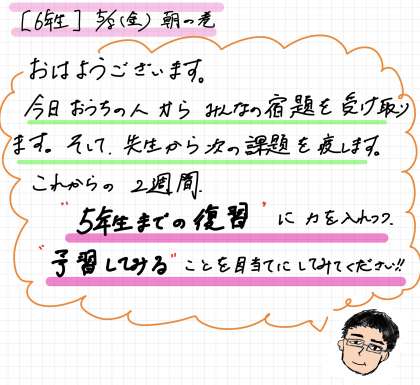 [6年生] 5/8(金) 朝の巻
おはようございます。
今日おうちの人からみんなの宿題を受け取り
ます。そして、先生から次の課題を渡します。
これからの2週間、
"5年生までの復習"に力を入れつつ、
"予習してみる"ことを目当てにしてみてください!!